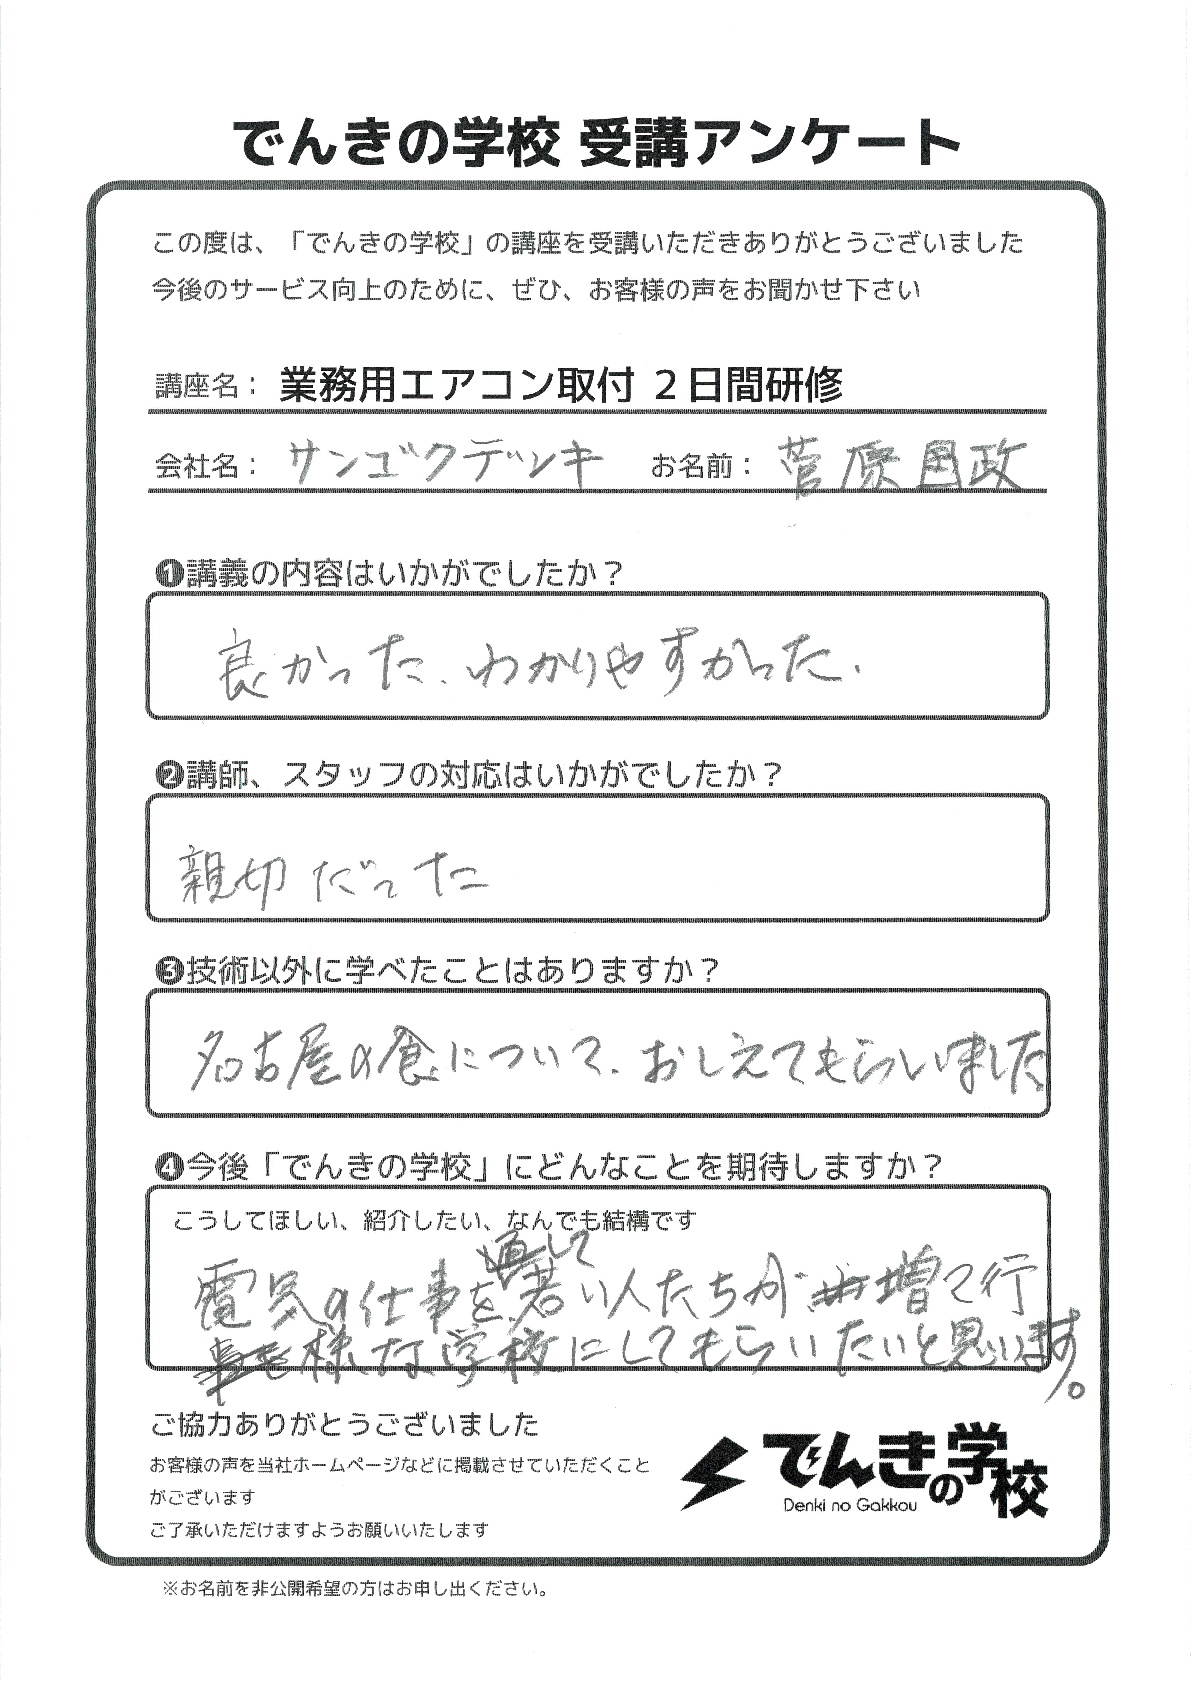 でんきの学校 受講アンケート
この度は、「でんきの学校」の講座を受講いただきありがとうございました
今後のサービス向上のために、ぜひ、お客様の声をお聞かせ下さい
講座名： 業務用エアコン取付 2日間研修
会社名： サンゴクデンキ お名前： 菅原国政
❶講義の内容はいかがでしたか？
良かった、わかりやすかった.
❷講師、スタッフの対応はいかがでしたか？
親切だった
❸技術以外に学べたことはありますか？
名古屋の食について、おしえてもらいました
❹今後「でんきの学校」にどんなことを期待しますか？
こうしてほしい、紹介したい、なんでも結構です
電気の仕事を通して若い人たちが増て行
様な学校にしてもらいたいと思います。
ご協力ありがとうございました
お客様の声を当社ホームページなどに掲載させていただくこと
がございます
ご了承いただけますようお願いいたします
でんきの学校
Denki no Gakkou
※お名前を非公開希望の方はお申し出ください。